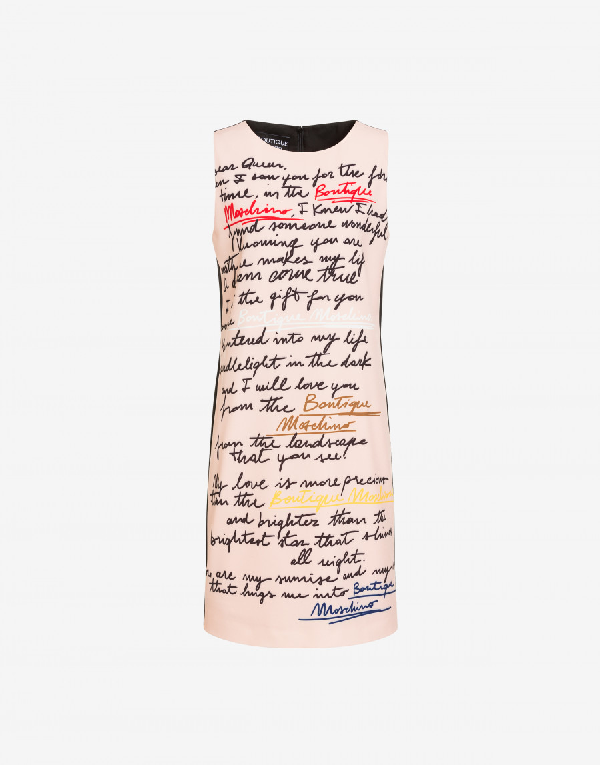 BOUTIQUE
Dear Queen,
en I saw you for the fir
time, in the Boutique
Moschino, I knew I had
found someone wonderful
Knowing you are
makes my lif
come true
the gift for you
Boutique Moschino
entered into my life
ndlelight in the dark
and I will love you
from the Boutique
Moschino
from the landscape
that you see!
My love is more precious
than the Boutique Moschino
and brighter than the
brightest star that shines
all night.
are my sunrise and my
that hugs me into Boutique
Moschino